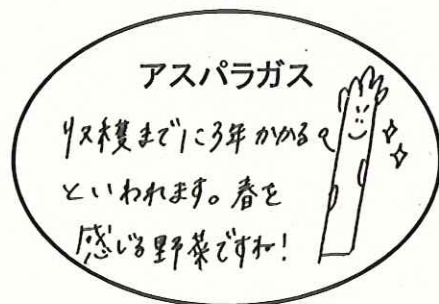 アスパラガス
収穫までに3年かかる
といわれます。春を
感じる野菜ですね!